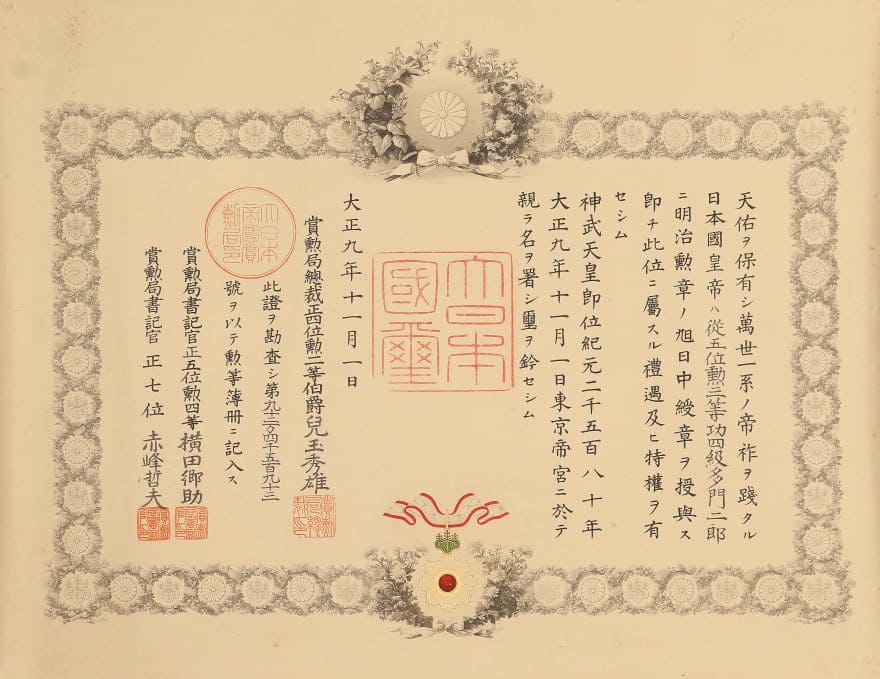 天佑ヲ保有シ萬世一系ノ帝祚ヲ踐タル
日本國皇帝ハ從五位勲三等功四級多門二郎
ニ明治勲章ノ旭日中綬章ヲ授與ス
卽チ此位ニ屬スル禮遇及ヒ特權ヲ有
セシム
神武天皇卽位紀元二千五百八十年
大正九年十一月一日東京帝宮ニ於テ
親ラ名ヲ署シ璽ヲ鈐セシム
大日本
國璽
大正九年十一月一日
賞勲局總裁正四位勲二等伯爵兒玉秀雄
此證ヲ勘査シ第九三万四千五百九十三
號ヲ以テ勲等簿册ニ記入ス
大日本
帝國賞
勲局印
賞勲局書記官正五位勲四等横田郷助
賞勲局書記官正七位赤峰哲夫